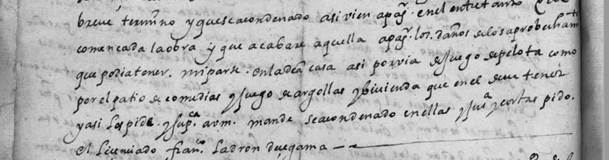 breve termino y quescacondenado asi vien apagr. en el entretanto
comencada la obra y que acabare aquella apagr. los. daños De los aprobechamtos
que podia tener. mi parte. en la dha casa asi por via de juego de pelota como
por el patio de comedias y Juego de argollas y bivienda que en el se ve tener
y asi lo pide y supca a v m. mande sea condenado en ellas y Jusa y costas pido.
el licenciado franco. Ladron de egama